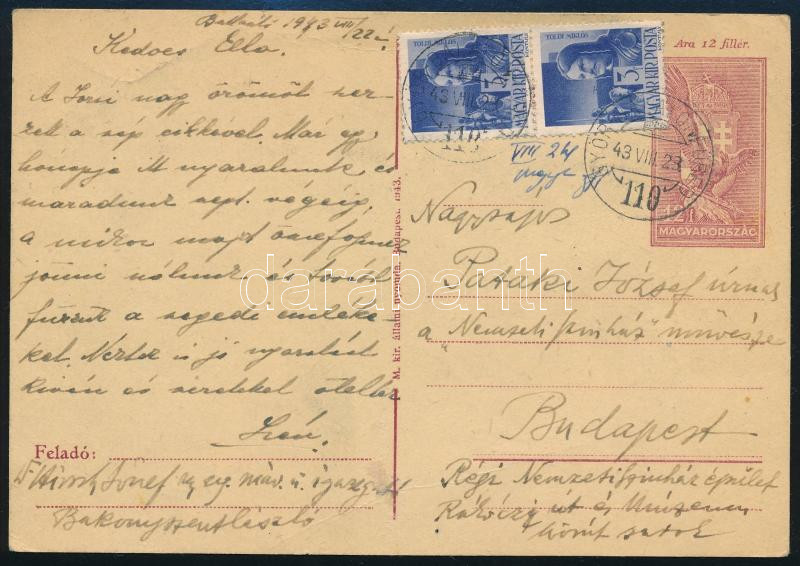 1943 VIII/22
Kedves Ella.
A Jocsi nagy örömöt szer-
zett a szép cikkével. Már egy
hónapja itt nyaralunk és
maradunk sept. végéig,
a mikor majd össze fognak
jönni nálunk és
a szegedi emléke-
ket. Nektek is jó nyaralást
kíván és szeretettel ölellek
Irén.
Feladó:
Hirsch József ny. máv. ü. igazgató
Bakonyszentlászló
M. kir. állami nyomda, Budapest. 1943.
TOLDI MIKLÓS
TOLDI MIKLÓS
3
3
MAGYAR KIR. POSTA
MAGYAR KIR. POSTA
Ára 12 fillér.
43 VIII 23
110
43 VIII 23
110
12 f
MAGYARORSZÁG
VIII 24
Nagyságos
Pataki József úrnak
a "Nemzeti Színház" művésze
Budapest
Régi Nemzeti Színház épület
Rákóczi út és Múzeum
körút sarok
darabanth